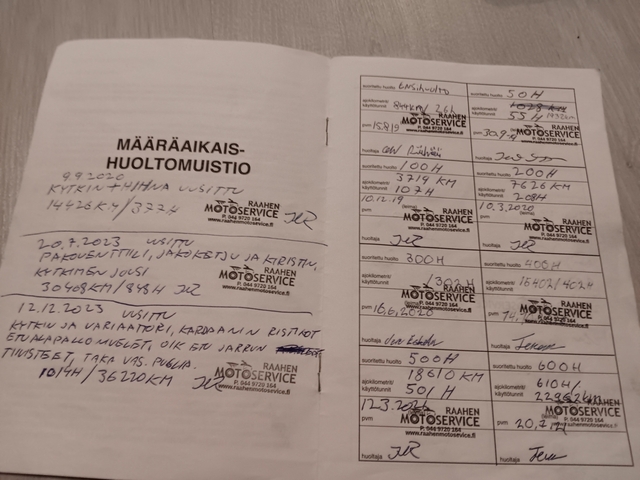 MÄÄRÄAIKAIS-
HUOLTOMUISTIO
9.9.2020
KYTKIN + HIHNA UUSITTU
14426 KM / 377H
RAAHEN
MOTOSERVICE
P. 044 9720 164
www.raahenmotosevice.fi
20.7.2023 UUSITU
PAKOVENTTIILI, JAKOKETJU JA KIRISTIN,
KYTKIMEN JOUSI
30408KM/848H
RAAHEN
MOTOSERVICE
P. 044 9720 164
www.raahenmotosevice.fi
12.12.2023 UUSITTU
KYTKIN JA VARIAATORI, KARDAANIN RISTIKOT
ETUALAPALLONIVELET, OIK ETU JARRUN
TIIVISTEET, TAKA VAS. PUSLIA.
1014H / 36220KM
RAAHEN
MOTOSERVICE
P. 044 9720 164
www.raahenmotosevice.fi
suoritettu huolto ENSIHUOLTO
ajokilometrit/
käyttötunnit 844KM/26h
pvm 15.8.19
RAAHEN
MOTOSERVICE
P. 044 9720 164
www.raahenmotosevice.fi
huoltaja
suoritettu huolto 50H
ajokilometrit/
käyttötunnit
55H 1932km
pvm
RAAHEN
MOTOSERVICE
P. 044 9720 164
www.raahenmotosevice.fi
huoltaja
suoritettu huolto 100H
ajokilometrit/
käyttötunnit 3719 KM
107H
pvm 10.12.19
RAAHEN
MOTOSERVICE
P. 044 9720 164
www.raahenmotosevice.fi
huoltaja
suoritettu huolto 200H
ajokilometrit/
käyttötunnit 7626 KM
208H
pvm 10.3.2020
RAAHEN
MOTOSERVICE
P. 044 9720 164
www.raahenmotosevice.fi
huoltaja
suoritettu huolto 300H
ajokilometrit/
käyttötunnit /302H
pvm 16.6.2020
RAAHEN
MOTOSERVICE
P. 044 9720 164
www.raahenmotosevice.fi
huoltaja
suoritettu huolto 400H
ajokilometrit/
käyttötunnit 15402/402H
pvm
RAAHEN
MOTOSERVICE
P. 044 9720 164
www.raahenmotosevice.fi
huoltaja
suoritettu huolto 500H
ajokilometrit/
käyttötunnit 18610 KM
501H
pvm
RAAHEN
MOTOSERVICE
P. 044 9720 164
www.raahenmotosevice.fi
huoltaja
suoritettu huolto 600H
ajokilometrit/
käyttötunnit 610H/
pvm
RAAHEN
MOTOSERVICE
P. 044 9720 164
www.raahenmotosevice.fi
huoltaja